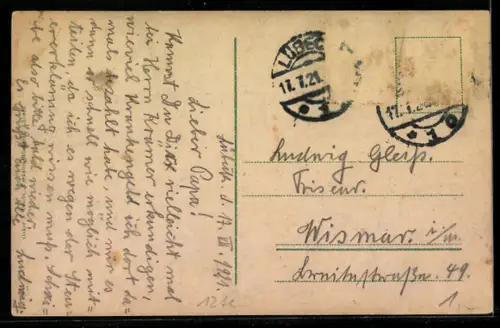 Lübeck. d. 17. VII. 1921.
Lieber Papa!
Kannst Du Dich vielleicht mal
bei Herrn Kramer erkundigen,
wieviel Krankengeld ich dort da=
mals bezahlt habe, und mir es
dann so schnell wie möglich mit=
teilen, da ich es wegen der Steu=
ererklärung wissen muß. Schrei=
be also bitte bald wieder.
Es grüßt Euch alle Ludwig.
LÜBECK
17.7.21
17.7.21
Ludwig Gleiß.
Friseur.
Wismar. i/m.
Breitestraße. 49.
1.